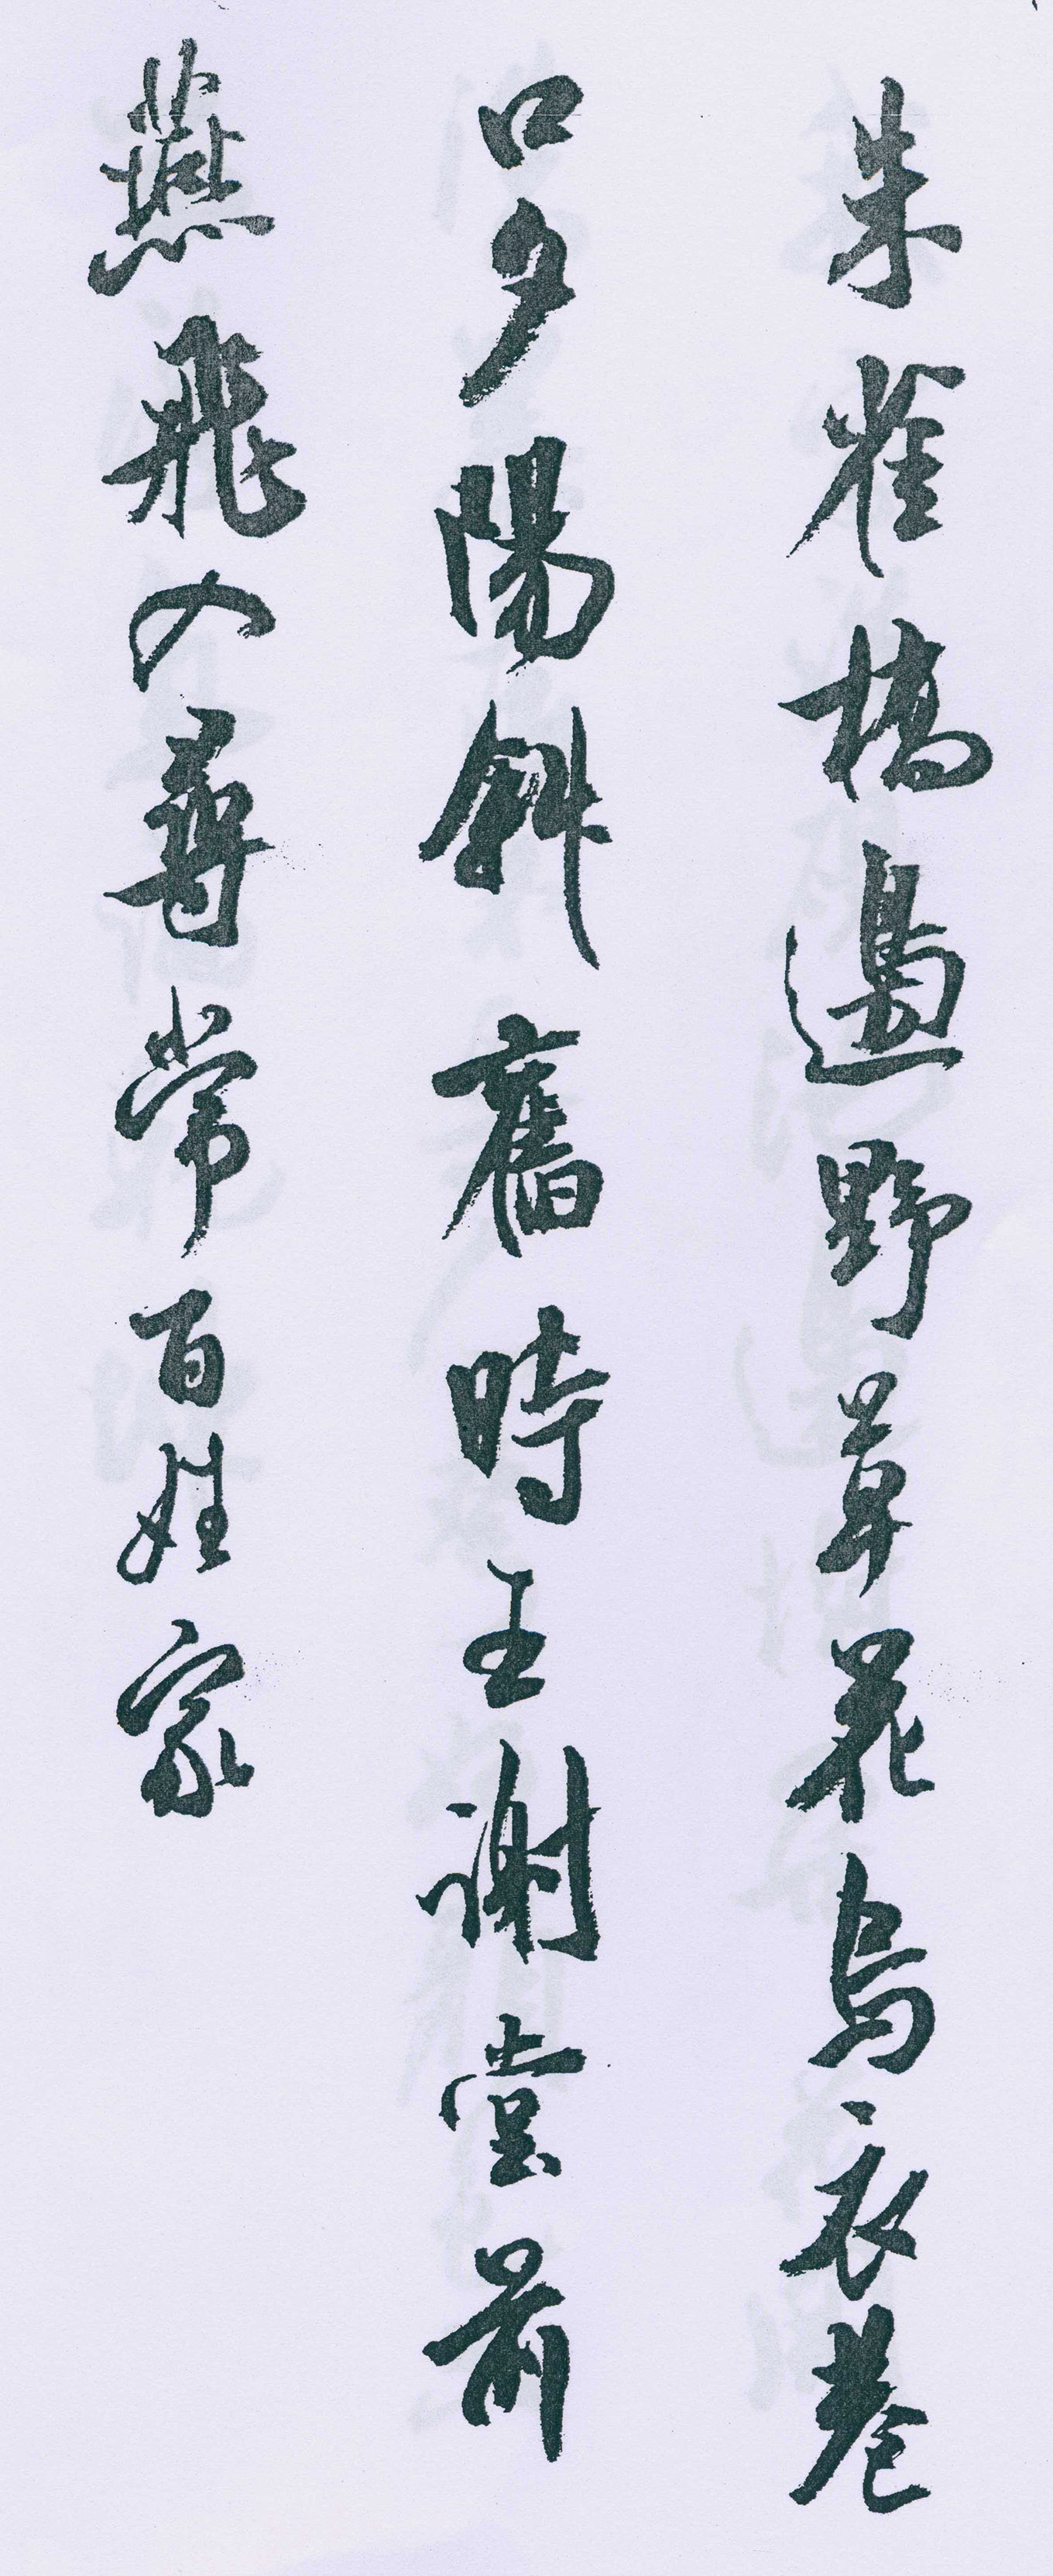 朱雀橋邊野草花烏衣巷
口夕陽斜舊時王謝堂前
燕飛入尋常百姓家